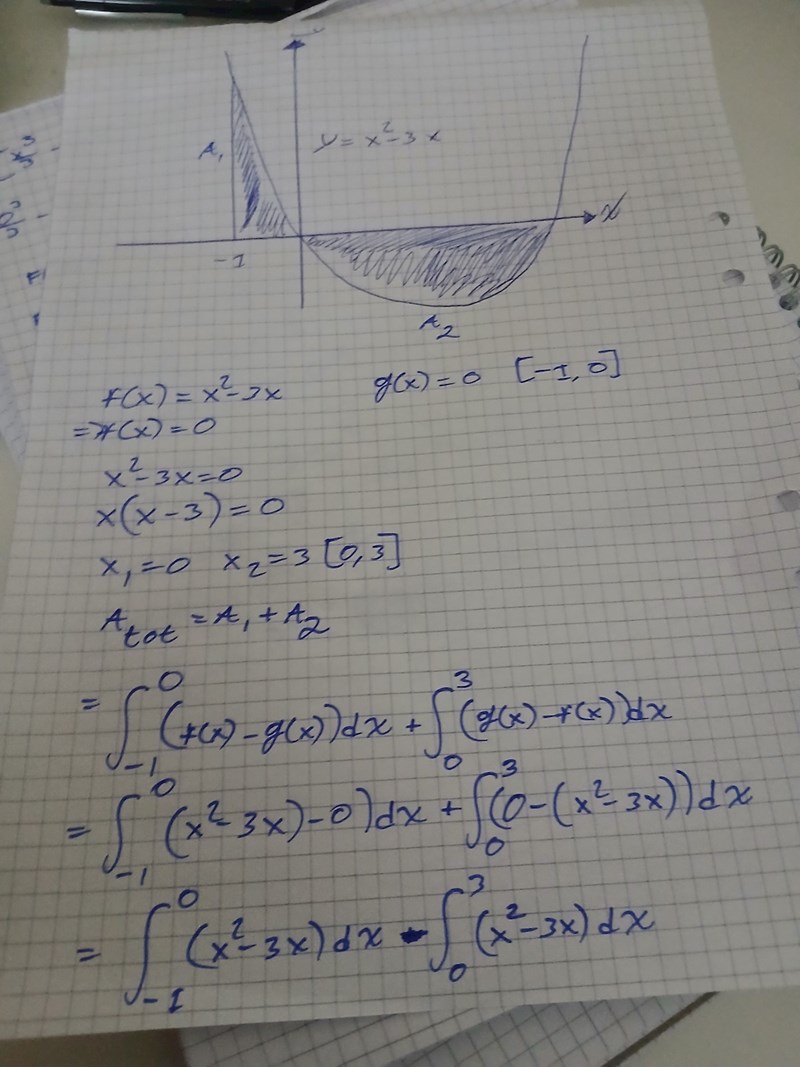 A₁
y = x² - 3x
x
-1
A₂
f(x) = x² - 3x    g(x) = 0    [-1, 0]
=> f(x) = 0
x² - 3x = 0
x(x - 3) = 0
x₁ = 0    x₂ = 3 [0, 3]
A_tot = A₁ + A₂
= ∫_{-1}^{0} (f(x) - g(x)) dx + ∫_{0}^{3} (g(x) - f(x)) dx
= ∫_{-1}^{0} (x² - 3x) - 0) dx + ∫_{0}^{3} (0 - (x² - 3x)) dx
= ∫_{-1}^{0} (x² - 3x) dx - ∫_{0}^{3} (x² - 3x) dx